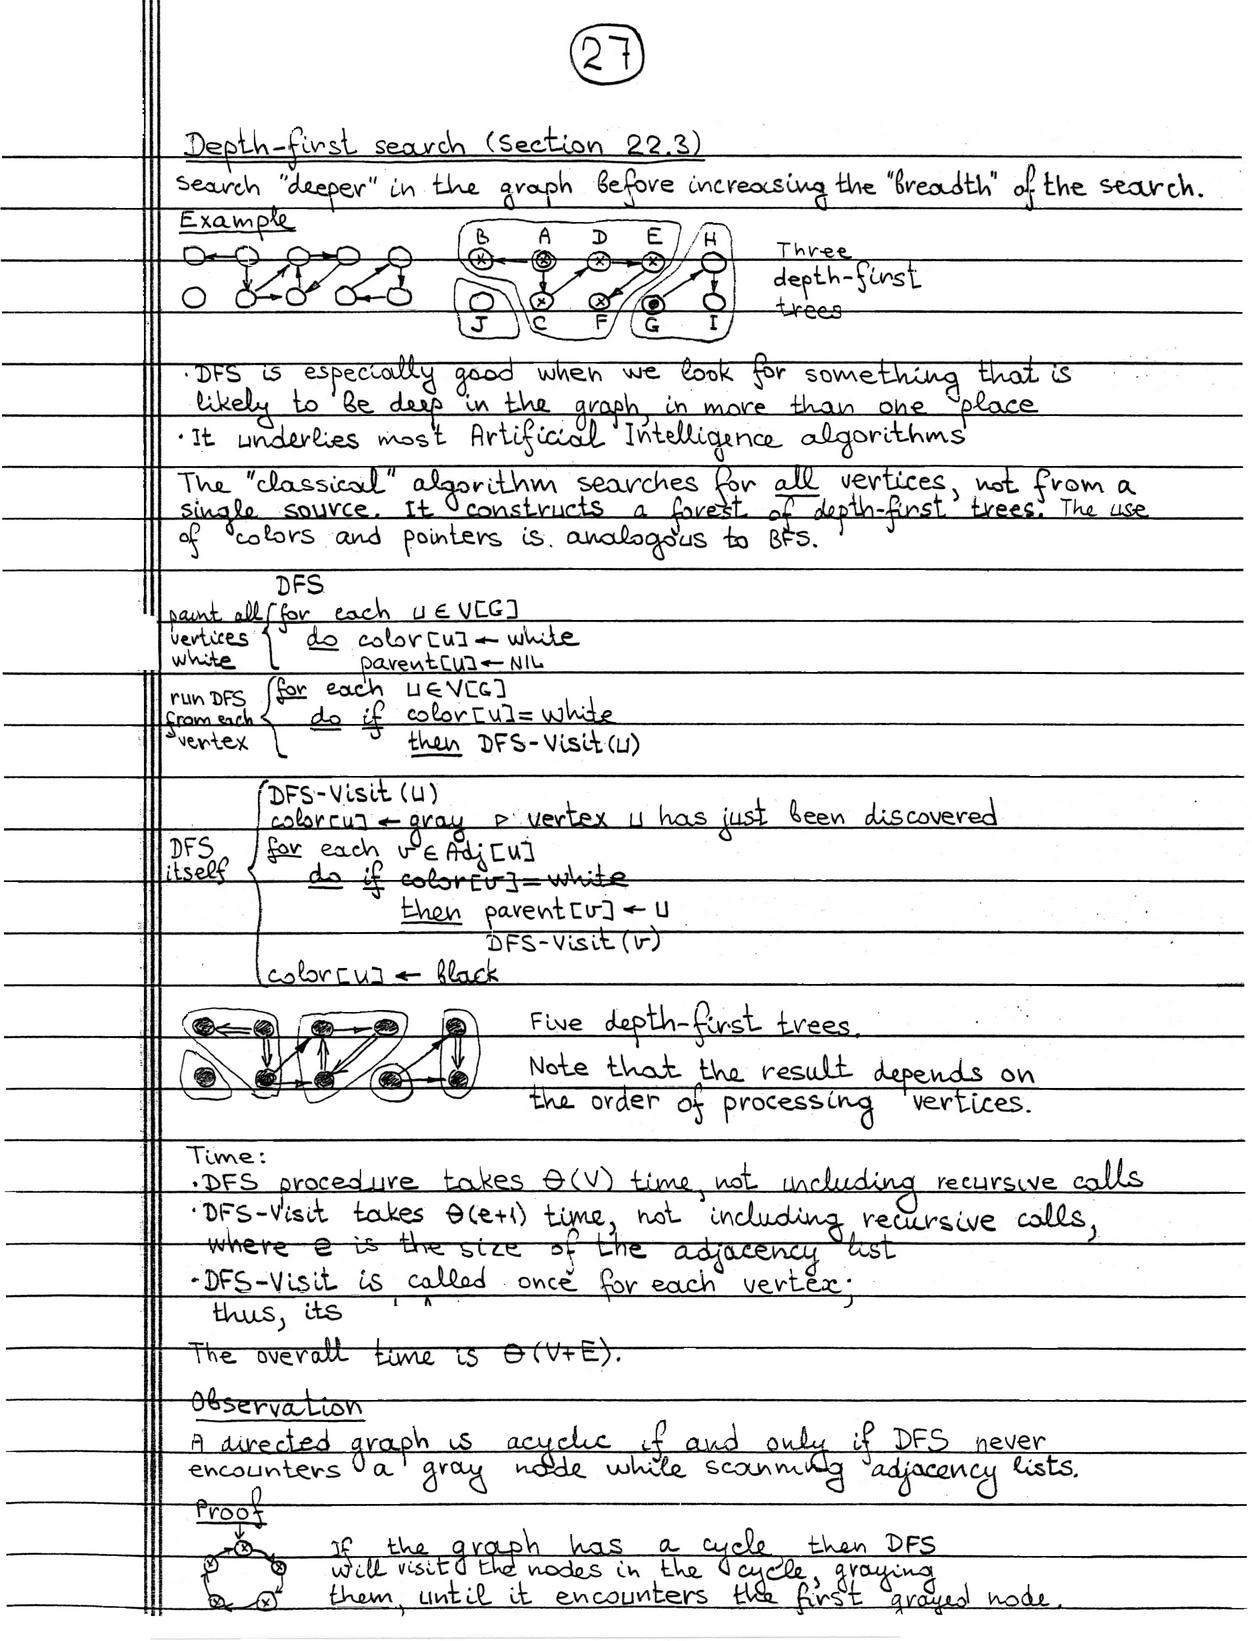 27
Depth-first search (Section 22.3)
Search "deeper" in the graph before increasing the "breadth" of the search.
Example
B A D E H
J C F G I
Three
depth-first
trees
· DFS is especially good when we look for something that is
likely to be deep in the graph, in more than one place
· It underlies most Artificial Intelligence algorithms
The "classical" algorithm searches for all vertices, not from a
single source. It constructs a forest of depth-first trees. The use
of colors and pointers is analogous to BFS.
DFS
paint all
vertices
white
for each u ∈ V[G]
do color[u] ← white
parent[u] ← NIL
run DFS
from each
vertex
for each u ∈ V[G]
do if color[u] = white
then DFS-Visit(u)
DFS
itself
DFS-Visit(u)
color[u] ← gray ▷ vertex u has just been discovered
for each v ∈ Adj[u]
do if color[v] = white
then parent[v] ← u
DFS-Visit(v)
color[u] ← black
Five depth-first trees.
Note that the result depends on
the order of processing vertices.
Time:
· DFS procedure takes Θ(V) time, not including recursive calls
· DFS-Visit takes Θ(e+1) time, not including recursive calls,
where e is the size of the adjacency list
· DFS-Visit is called once for each vertex;
thus, its
The overall time is Θ(V+E).
Observation
A directed graph is acyclic if and only if DFS never
encounters a gray node while scanning adjacency lists.
Proof
If the graph has a cycle then DFS
will visit the nodes in the cycle, graying
them, until it encounters the first grayed node.